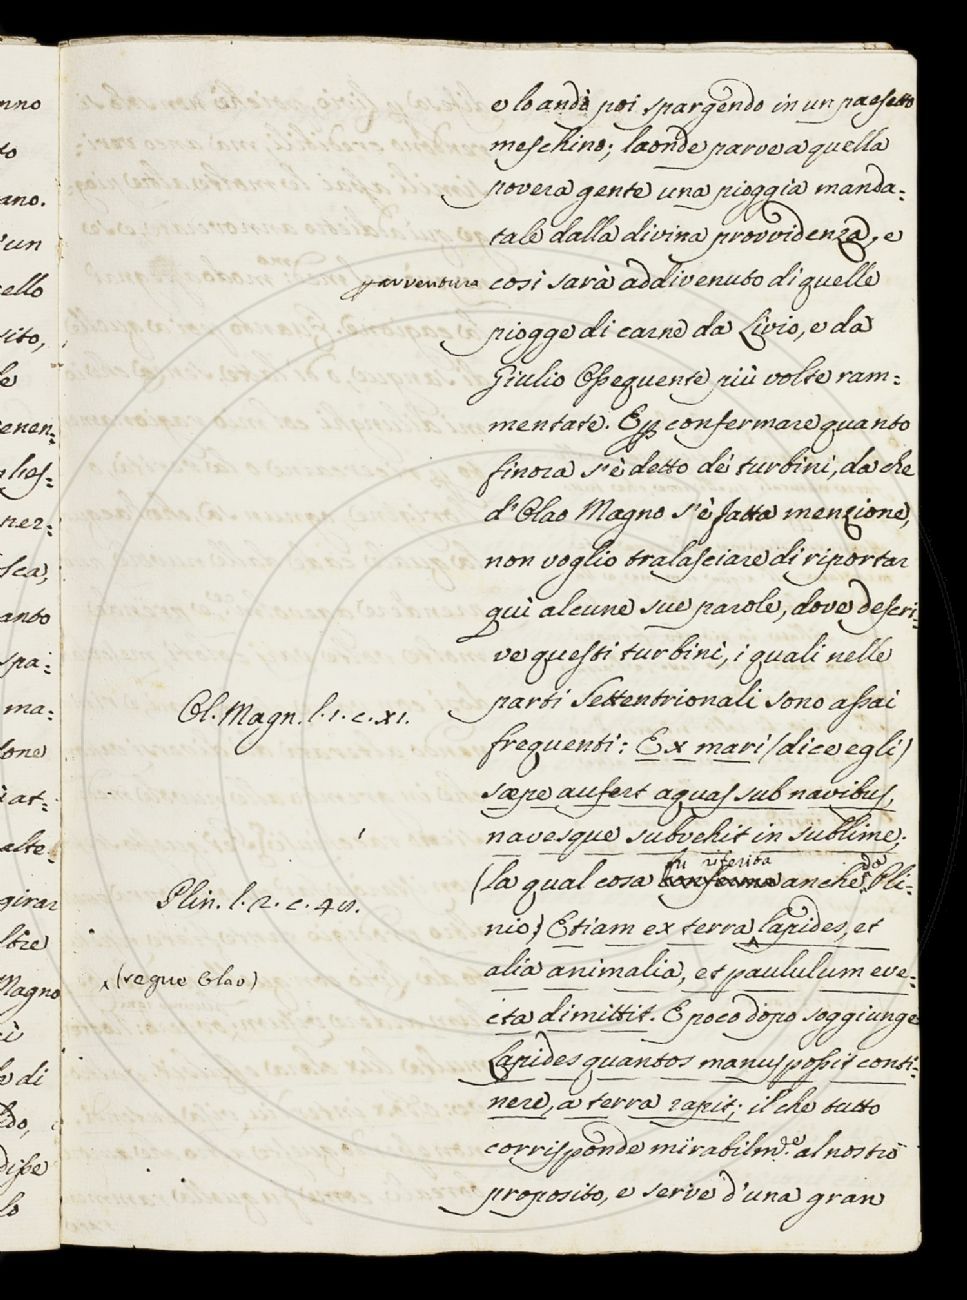 e lo andò poi spargendo in un paesetto
meschino; laonde parve a quella
povera gente una pioggia manda:
tale dalla divina provvidenza, e
p avventura
così sarà addivenuto di quelle
piogge di carne da Livio, e da
Giulio Ossequente più volte ram:
mentate. E p confermare quanto
finora s'è detto dei turbini, da che
d'Olao Magno s'è fatta menzione,
non voglio tralasciare di riportar
quì alcune sue parole, dove descri:
ve questi turbini, i quali nelle
parti Settentrionali sono assai
Ol. Magn. l. 1. c. XI.
frequenti: Ex mari (dice egli)
sæpe aufert aquas sub navibus,
navesque subvehit in sublime;
vien riferita
(la qual cosa conferma anche da Pli:
Plin. l. 2. c. 48.
nio) Etiam ex terra lapides, et
alia animalia, et paululum eve:
(segue Olao)
cta dimittit. E poco dopo soggiunge
Lapides quantos manus possit conti:
nere, a terra rapit; il che tutto
corrisponde mirabilm.e al nostro
proposito, e serve d'una gran
nno
to
ano.
'un
ello
sito,
le
enen:
ner:
sca,
anto
spa:
ma:
ione
at:
alte:
girar
ltre
Magno
di
ldo,
disse
lo